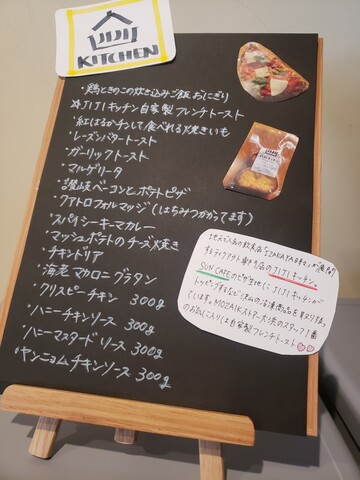 JIJI
KITCHEN
・鶏ときのこの炊き込みご飯 おにぎり
☆JIJIキッチン自家製フレンチトースト
・紅はるかチンして食べれる焼きいも
・レーズンバタートースト
・ガーリックトースト
・マルゲリータ
・讃岐ベーコンとポテトピザ
・クアトロフォルマッジ(はちみつがついてます)
・スパイシーキーマカレー
・マッシュポテトのチーズ焼き
・チキンドリア
・海老マカロニグラタン
・クリスピーチキン 300g
・ハニーチキンソース 300g
・ハニーマスタードソース 300g
・ヤンニョムチキンソース 300g
地元で人気の飲食店「IZAKAYA
するテイクアウト専門店のJIJIキッチン。
SUN CAFEのピザ生地にJIJIキッチンが
トッピングするなど沢山の冷凍商品を
ています。MOZAIKストアー大浜のスタッフ1番
のお気に入りは自家製フレンチトースト